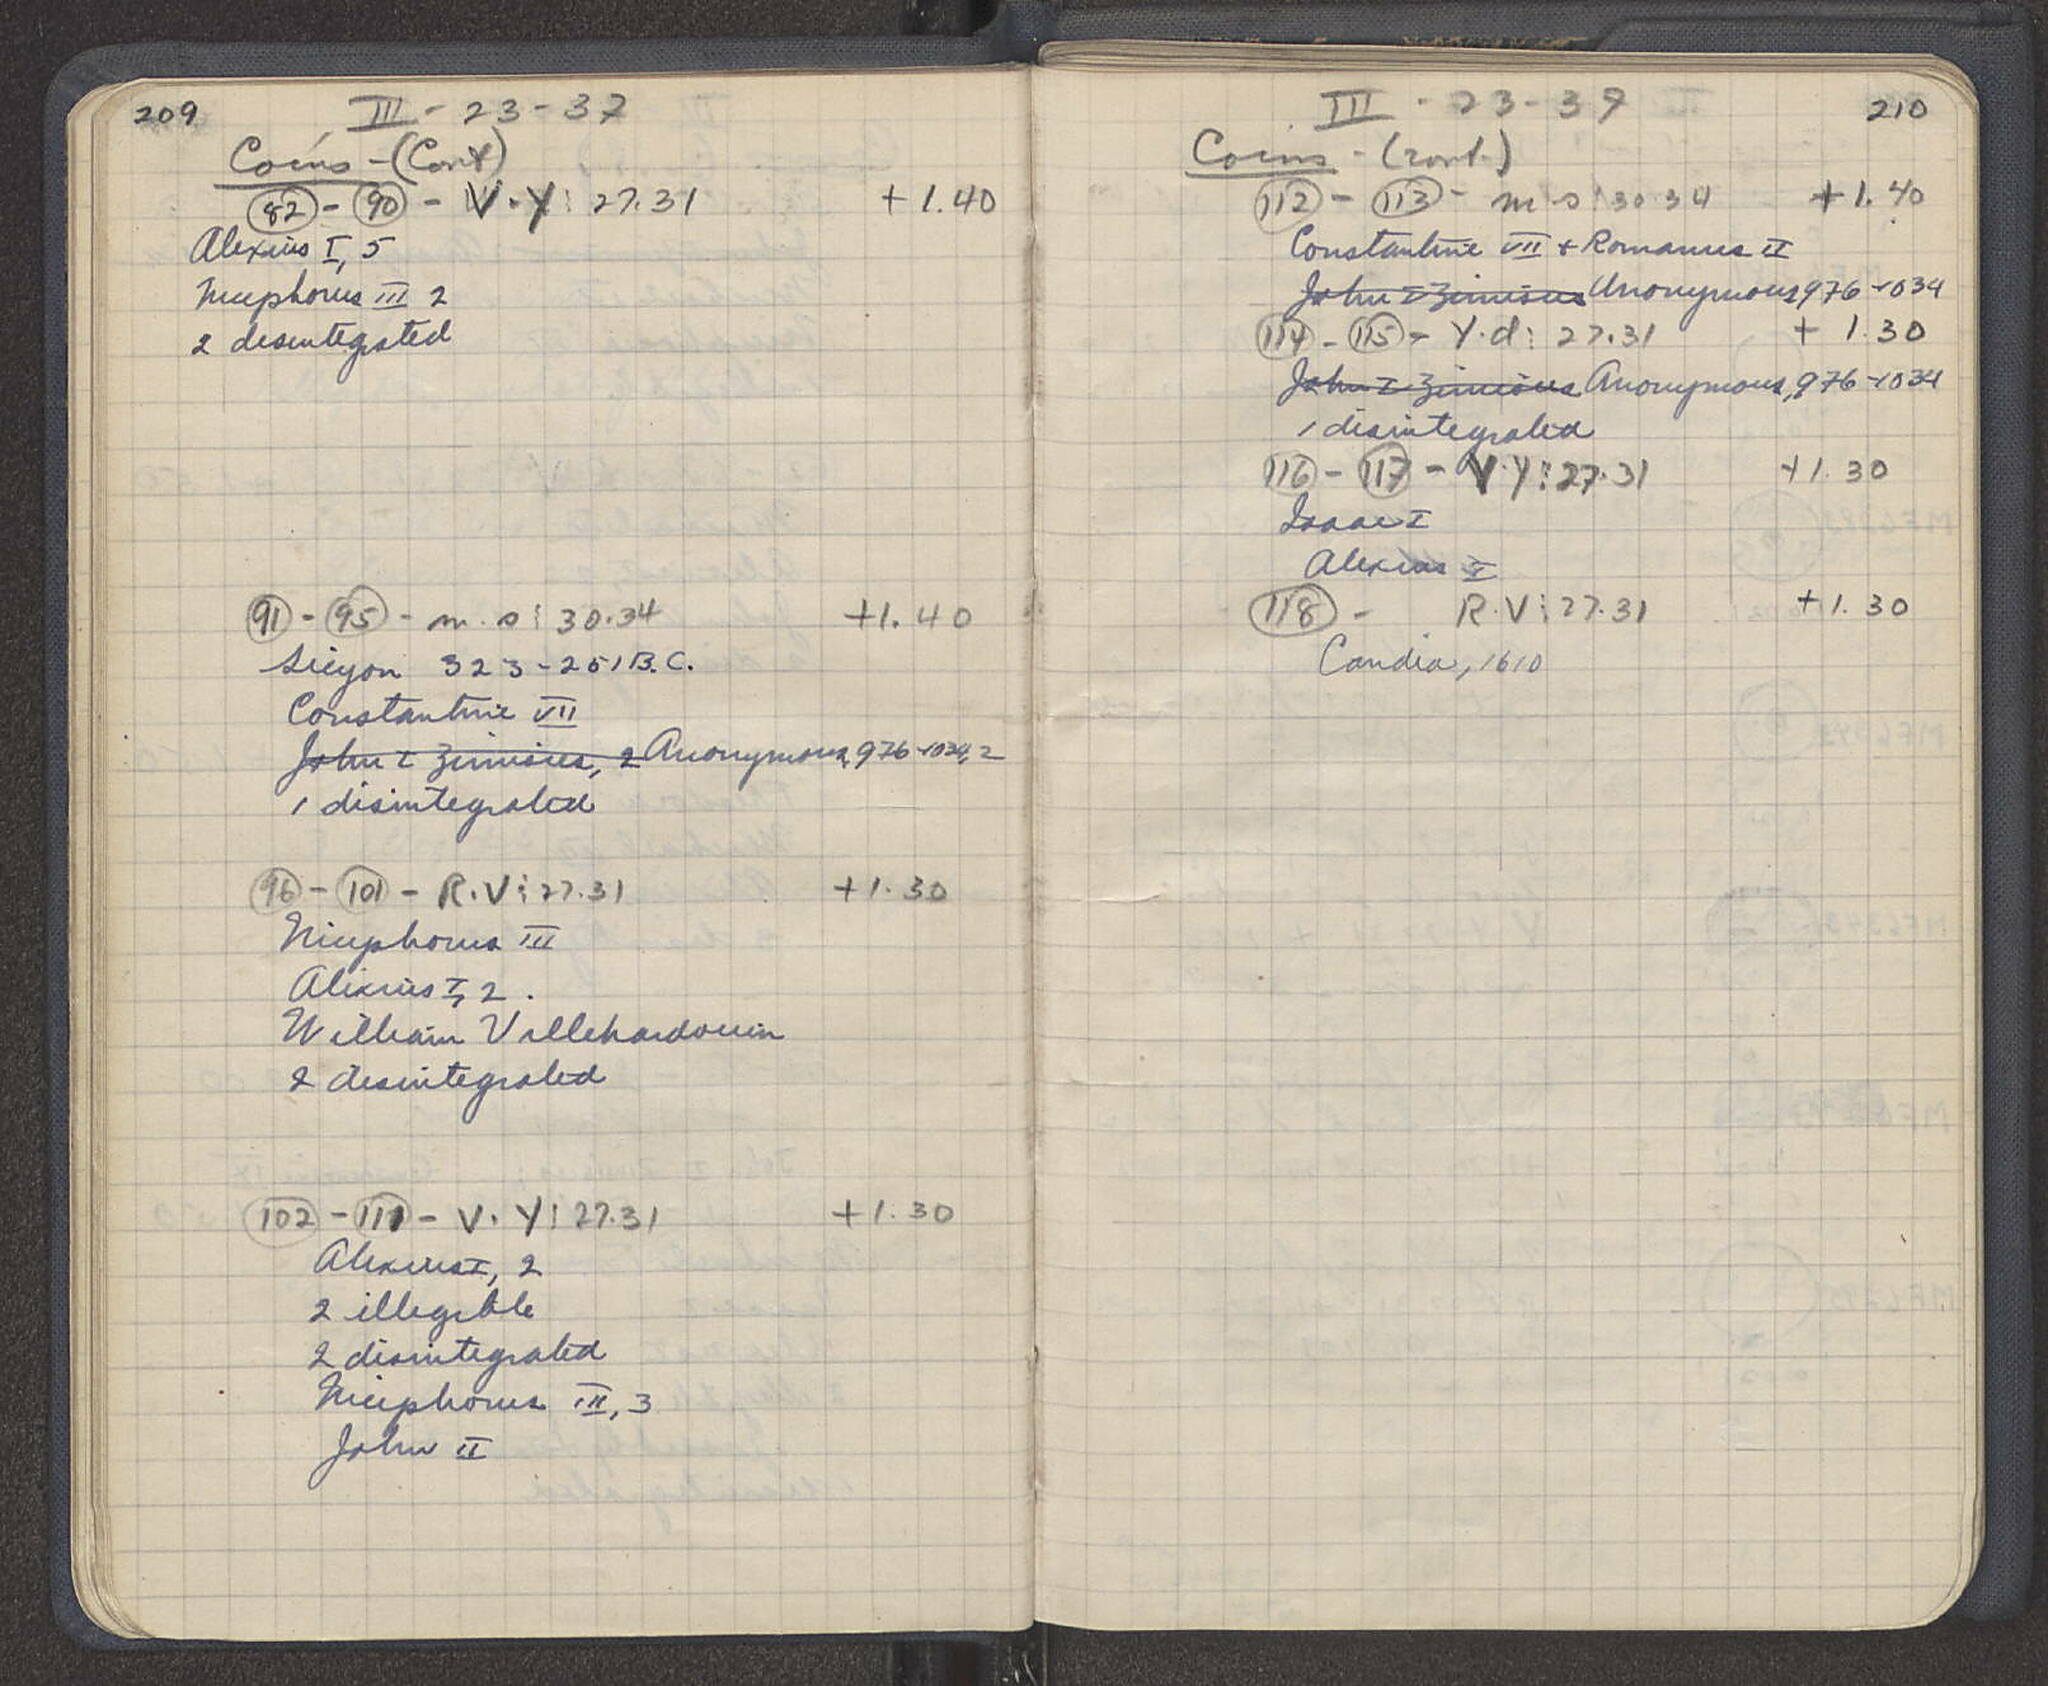 209 III - 23 - 37
Coins - (Cont)
82 - 90 - V.Y: 27.31 +1.40
Alexius I, 5
Nicephorus III 2
2 desintegrated
91 - 95 - m.s: 30.34 +1.40
Sicyon 323-251 B.C.
Constantine VII
John I Zimisces, 2 Anonymous, 976-1034, 2
1 disintegrated
96 - 101 - R.V: 27.31 +1.30
Nicephorus III
Alexius I, 2.
William Villehardouin
2 disintegrated
102 - 111 - V.Y: 27.31 +1.30
Alexius I, 2
2 illegible
2 disintegrated
Nicephorus III, 3
John II
III - 23 - 37 210
Coins - (cont.)
112 - 113 - m.s: 30.34 +1.40
Constantine VII + Romanus II
John I Zimisces Anonymous 976-1034
114 - 115 - Y.d: 27.31 +1.30
John I Zimisces Anonymous, 976-1034
1 disintegrated
116 - 117 - V.Y: 27.31 +1.30
Isaac I
Alexius I
118 - R.V: 27.31 +1.30
Candia, 1610